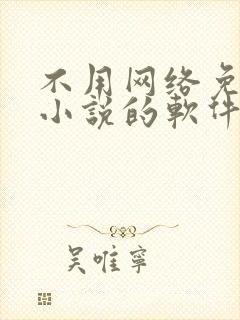 不用网络免
小説的軟件
吴唯寧